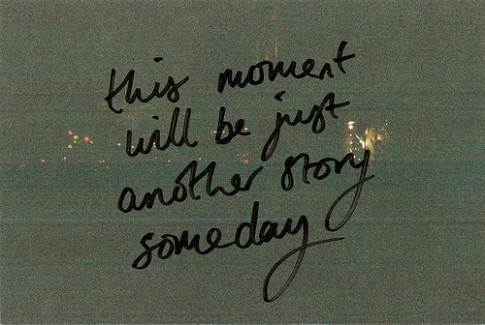 this moment
will be just
another story
someday